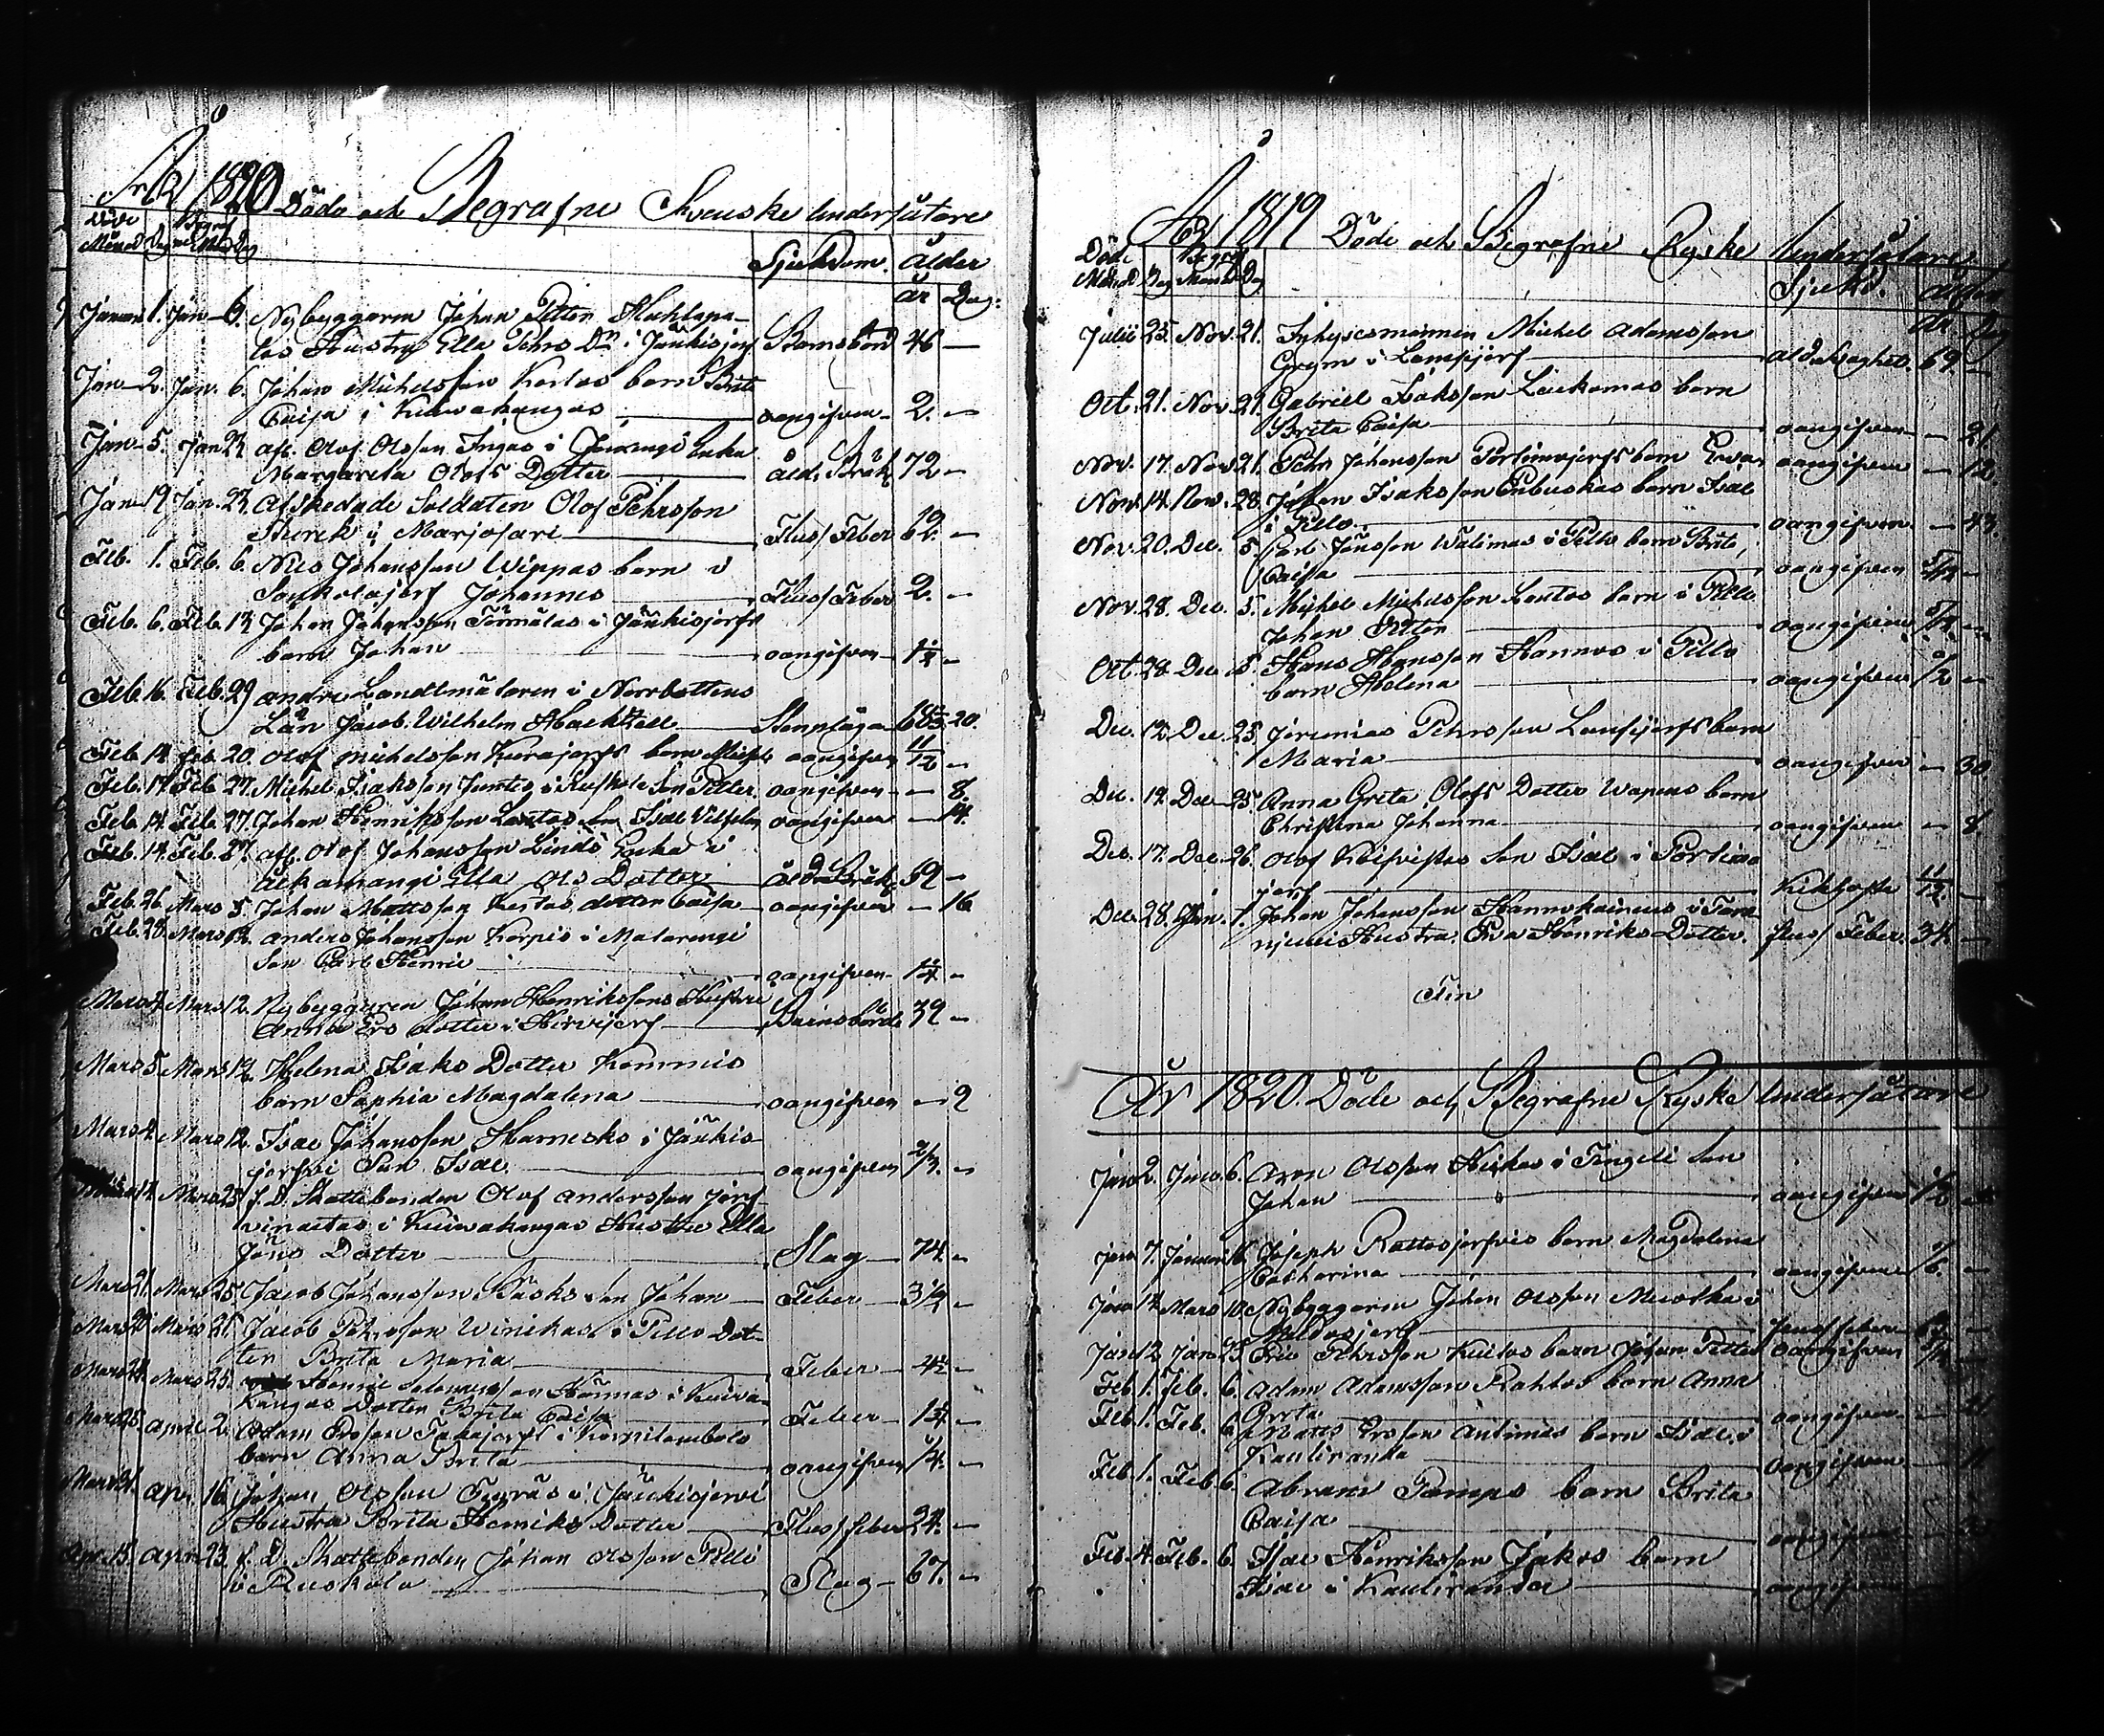 År 1820 Döde och Begrafne Svenske Undersåtare
Döde Begrof
Månad Dag Månad Dag
Sjukdom. Ålder
År Dag:
Januari 1. Jan. 6. Nybyggaren Johan Petter
Hustru Ella Pehrs Dr i Jäukisjerf Barnsbörd 46 —
Jan. 2. Jan. 6. Johan Michelsson Kerlas barn Brita
Caisa i Kuiwakangas oangifven 2. —
Jan. 5. Jan 23. afl. Olof Olsson Ingas i Enka
Margareta Olofs Dotter åld. Bräk. 72 —
Jan. 19. Jan. 23. Afskedade Soldaten Olof Pehrsson
Sterck i Marjosari Fluss Feber 62. —
Feb. 1. Feb. 6. Nils Johansson Wippas barn i
Soukolojerf Johannes Fluss Feber 2. —
Feb. 6. Feb. 13. Johan Johansson Törmälas i Jäukisjerfvi
barn Johan oangifven 1 1/2 —
Feb. 16. Feb. 29 andre Landtmätaren i Norrbottens
Län Jacob Wilhelm Stenplåga 68 20.
Feb. 14. Feb. 20. Olof Michelsson Kurajerfs barn Michel oangifven 11/12 —
Feb. 17. Feb. 27. Michel Isaksson Juntis i Ruskola Son Petter oangifven — 8
Feb. 14. Feb. 27. Johan Henriksson Lantos Son Isac Vilhelm oangifven — 14.
Feb. 14. Feb. 27. afl. Olof Johansson Lindö Enka i
Ella Ols Dotter ålders Bräk. 59 —
Feb. 26. Mars 5. Johan Mattsson Kertas dotter Caisa oangifven — 16
Feb. 28. Mars 12. Anders Johansson Korpis i Matarengi
Son Carl Henric oangifven 1 1/4 —
Mars 4 Mars 12. Nybyggaren Johan Henrikssons Hustru
Anna Ers dotter i Hirvijerf Barnsbörd 39 —
Mars 5 Mars 12. Helena Isaks Dotter Kemmis
barn Sophia Magdalena oangifven — 2
Mars 4 Mars 12. Isac Johansson Harnesko i Jäukis-
jerfvi Son Isac oangifven —
Mars 25 f. D. Skattebonden Olof Andersson Jerf-
i Kuiwakangas Hustru Ella
Jöns Dotter Slag 74. —
Mars 21. Mars 25. Jacob Johansson Räsks son Johan Feber 3 1/2 —
Mars 25. Jacob Pehrsson Winikas i Pello Dot-
ter Brita Maria Feber —
Mars 24. Mars 25. Henric Salomonsson Hannas i Kuiva-
kangas Dotter Brita Caisa Feber —
Mars 28. April 2. Adam Ersson i Korpilombolo
barn Anna Brita oangifven 1/4. —
Mars 31. Apr. 16. Johan Olsson i Jäukisjervi
Hustru Brita Henriks Dotter Fluss feber 24. —
Apr. 15. Apr. 23. f. D. Skattebonden Johan Olsson Pelli
i Ruskola Slag 67. —
År 1819 Döde och Begrafne Ryske Undersåtare
Döde Begrof
Månad Dag Månad Dag
Sjukd. Ålder
År Dag
Julii 25. Nov. 21. Inhysesmannen Michel Adamsson
Grym i Lampsjerf ålds svaghet. 69. —
Oct. 21. Nov. 21. Gabriel Isaksson Laukamas barn
Brita Caisa oangifven — 21
Nov. 17. Nov. 21. Pehr Johansson Portimojerfs barn Eva oangifven — 12
Nov. 14. Nov. 28. Johan Isaksson barn Isac
i Pello oangifven — 43.
Nov. 20. Dec. 5. Carl Jönsson Wälimas i Pello barn Brita
Caisa oangifven —
Nov. 28. Dec. 5. Michel Michelsson Lantos barn i Pello
Johan Petter oangifven —
Oct. 28. Dec. 5. Hans Hansson Hannos i Pello
barn Helena oangifven 1/2 —
Dec. 12. Dec. 25. Jeremias Pehrsson barn
Maria oangifven — 30
Dec. 14. Dec. 25. Anna Greta Olofs Dotter Wapens barn
Christina Johanna oangifven — 8
Dec. 17. Dec. 26. Olof Son Isac i Portimo
jerf Kikhosta 11/12. —
Dec. 28. Jan. 1. Johan Johansson Hannukainens i
Hustru Eva Henriks Dotter. fluss Feber 34. —
Fin
År 1820. Döde och Begrafne Ryske Undersåtare
Jan. 2. Jan. 6. Aron Olsson Heikas i Tengeli Son
Johan oangifven
Jan. 7. Januari 16. Joseph Rattosjerfvis barn Magdalena
Catharina oangifven
Jan. 14. Mars 10. Nybyggaren Johan Olsson Muotka i
Jan. 12. Jan. 23. Eric Pehrsson barn Johan Petter oangifven
Feb. 1. Feb. 6. Adam Adamsson Rahtos barn Anna
Greta oangifven — 21
Feb. 1. Feb. 6. Mats Ersson Antimas barn Isac i
Kauliranda oangifven — 11
Feb. 1. Feb. 6. Abram Pamps barn Brita
Caisa oangifven
Feb. 4. Feb. 6. Isac Henriksson Jakos barn
Isac i Kauliranda oangifven